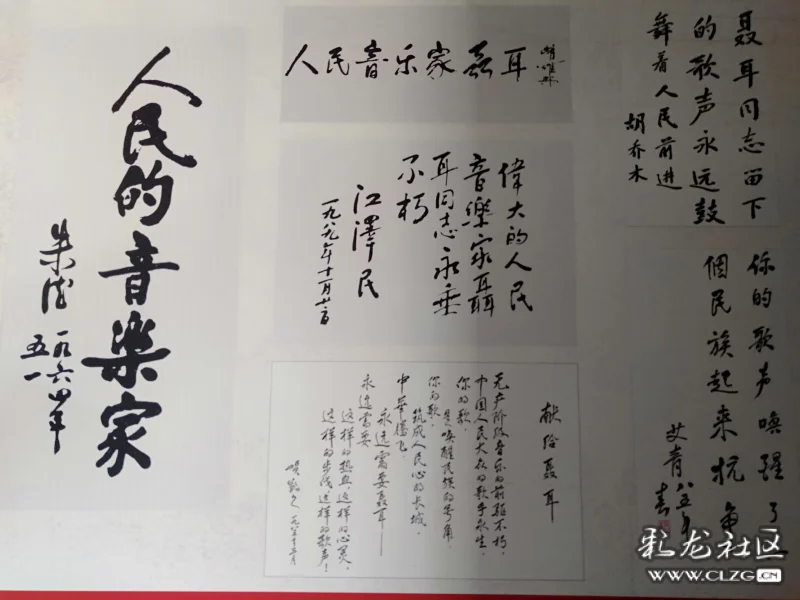 人民的音樂家
朱德
一九六四年
五一
人民音乐家聂耳
偉大的人民
音樂家聶
耳同志永垂
不朽
江澤民
一九八九年十一月廿一日
献给聂耳
无产阶级音乐的前驱不朽,
中国人民大众的歌手永生,
你的歌,
是唤醒民族的号角,
你的歌,
筑成人民心的长城,
中华腾飞,
永远需要聂耳——
永远需要
这样的热血,这样的心灵,
这样的步伐,这样的歌声!
聂耳同志留下
的歌声永远鼓
舞着人民前进
胡乔木
你的歌声唤醒了
個民族起来抗争
艾青 八五年
春
彩龙社区
WWW.CLZG.CN